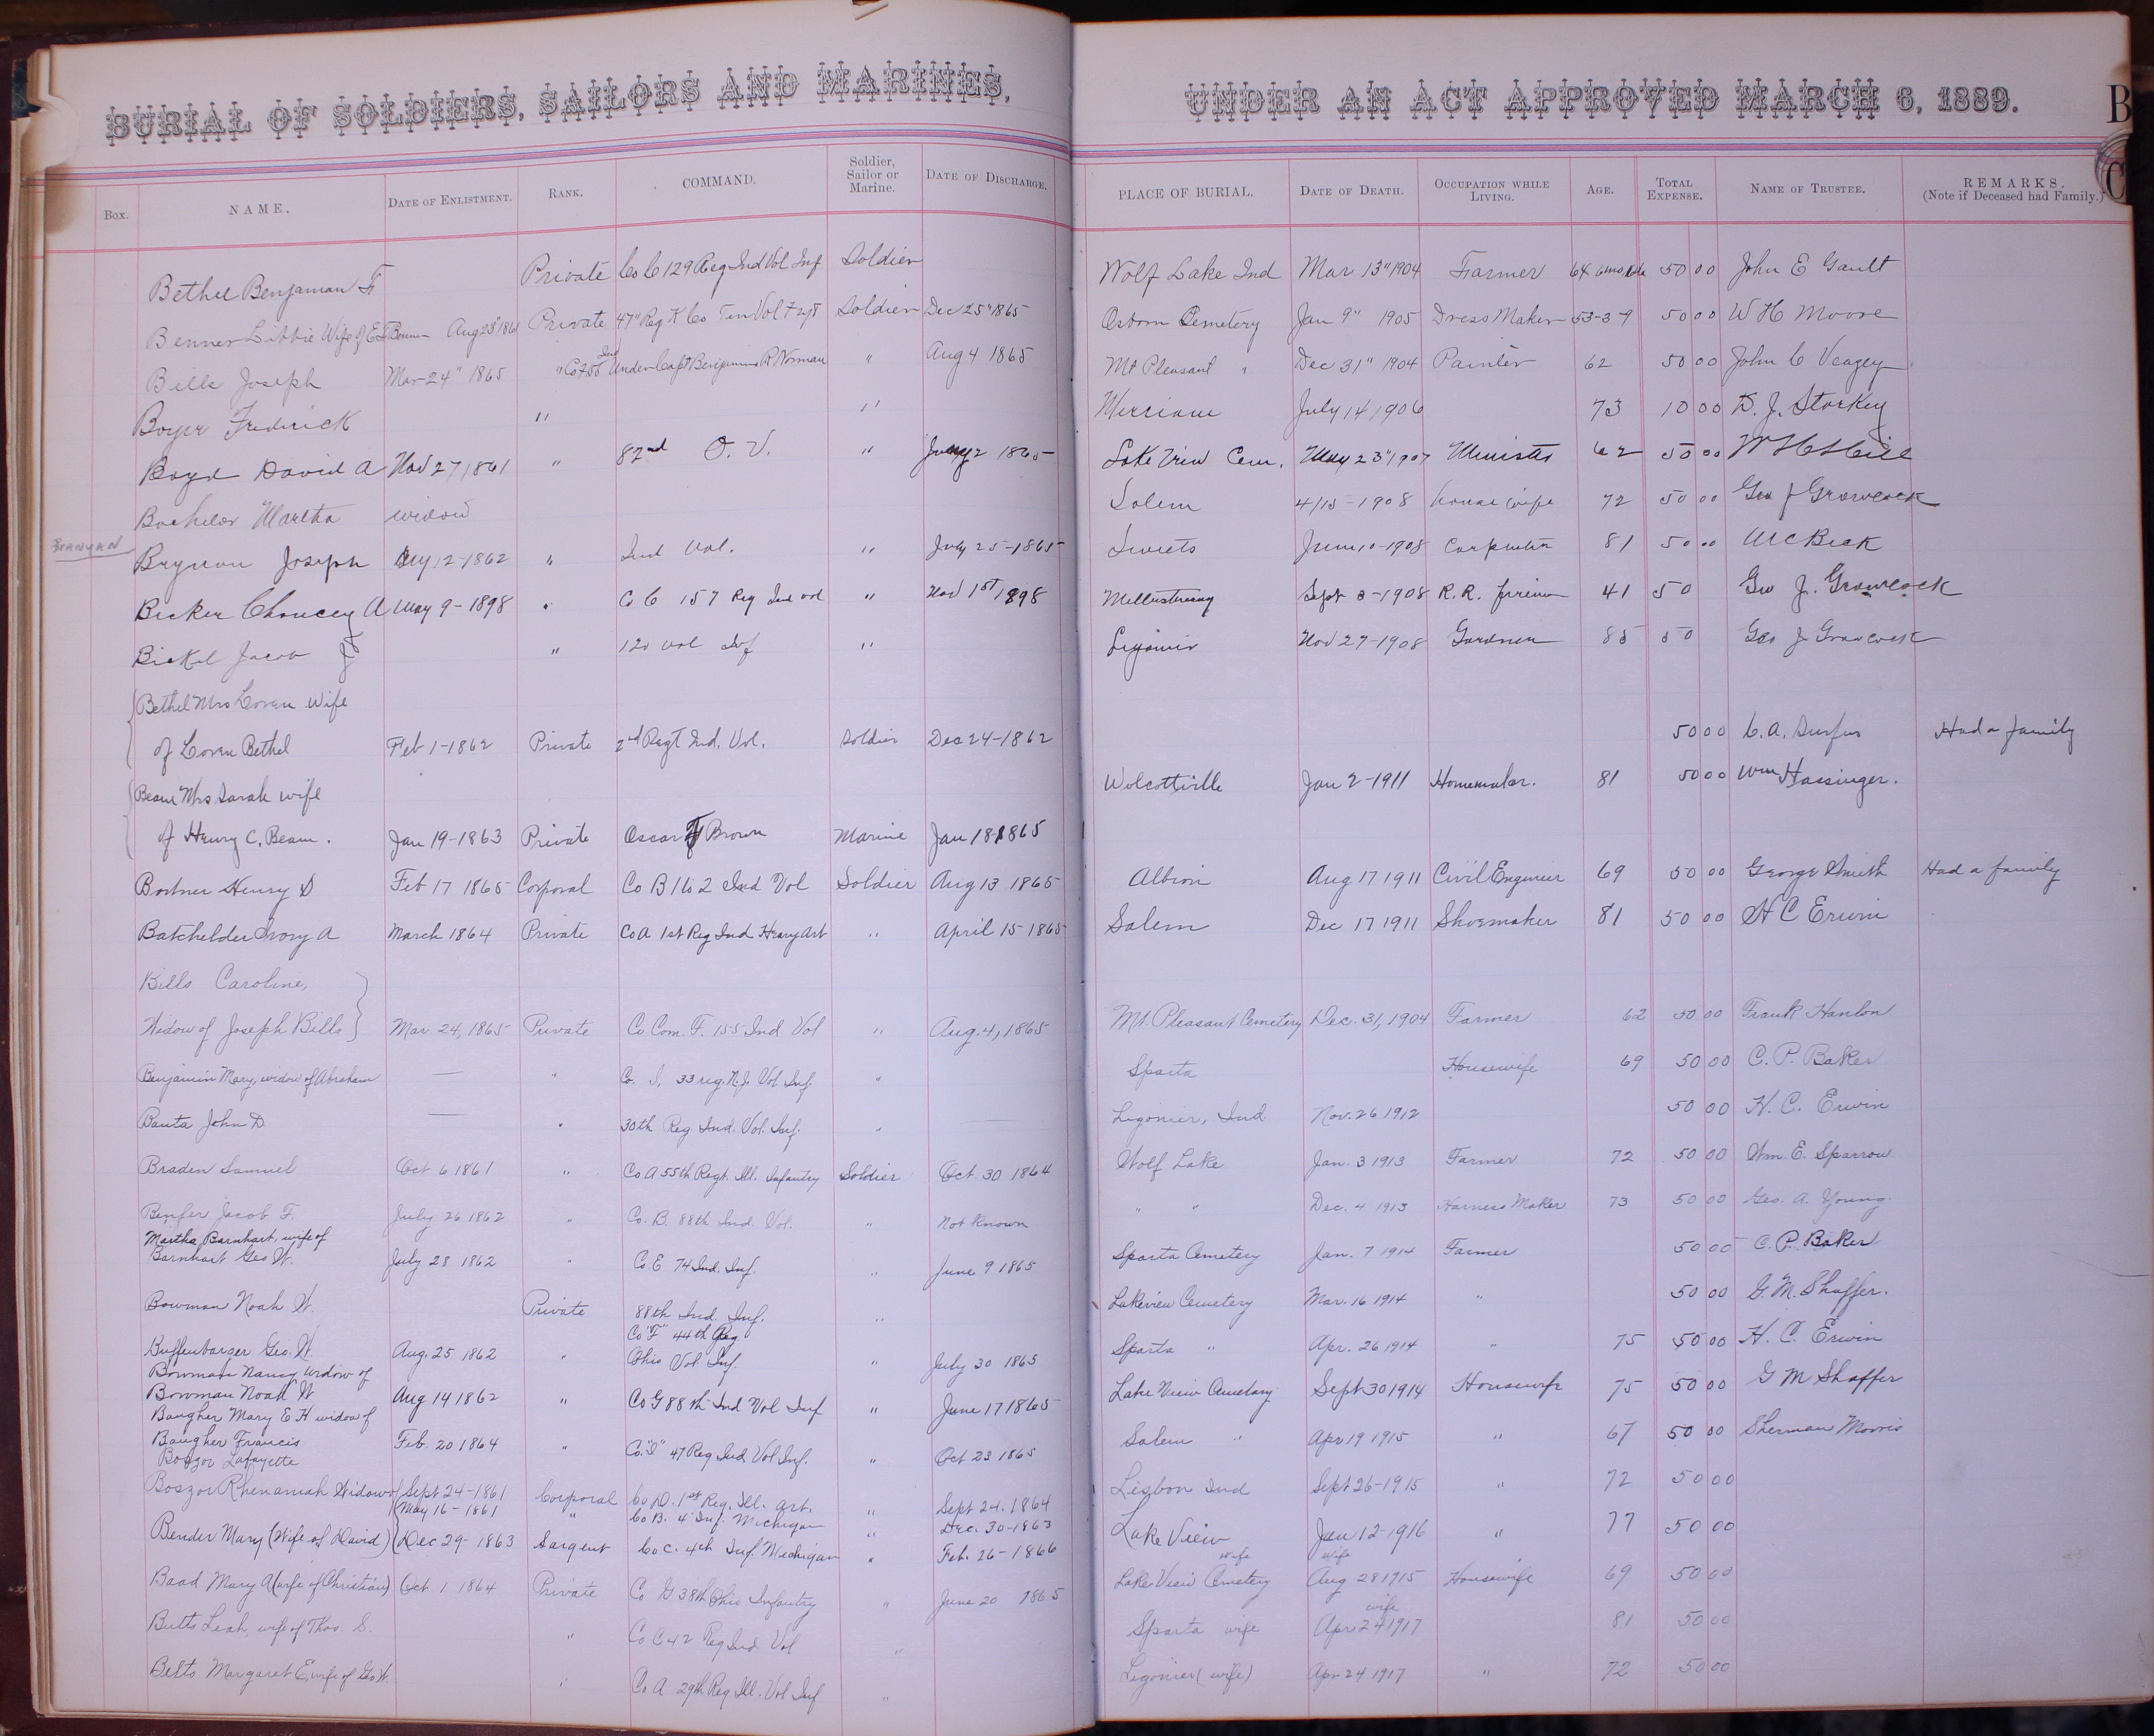 BURIAL OF SOLDIERS, SAILORS AND MARINES, UNDER AN ACT APPROVED MARCH 6, 1889.
B
C
Box. NAME. DATE OF ENLISTMENT. RANK. COMMAND. Soldier, Sailor or Marine. DATE OF DISCHARGE. PLACE OF BURIAL. DATE OF DEATH. OCCUPATION WHILE LIVING. AGE. TOTAL EXPENSE. NAME OF TRUSTEE. REMARKS. (Note if Deceased had Family.)
Bethel Benjaman F Private Co C 129 Reg Ind Vol Inf Soldier Wolf Lake Ind Mar 13" 1904 Farmer 64 6mo 50 00 John E Gault
Benner Libbie Wife of E Benner Aug 23" 1861 Private 47" Reg K Co Vol Soldier Dec 25" 1865 Osborn Cemetery Jan 9" 1905 Dress Maker 53-3-9 50 00 W H Moore
Bills Joseph Mar 24" 1865 " Co F 155 Ind Under Capt Benjamin R Norman " Aug 4 1865 Mt Pleasant " Dec 31" 1904 Painter 62 50 00 John C Veazey
Boyer Frederick " " Merriam July 14 1906 73 10 00 D. J. Starkey
Boyd David A Nov 27 1861 " 82nd O. V. " 2 1865 Lake View Cem. May 23" 1907 Minister 62 50 00 W H Hill
Bachelor Martha widow Salem 4/15-1908 house wife 72 50 00 Geo J Growcock
BRANYAN
Brynon Joseph Aug 12-1862 " Ind Vol. " July 25-1865 June 10-1908 Carpenter 81 50 00 M C Beck
Becker Chancey A May 9-1898 " Co C 157 Reg Ind vol " Nov 1st 1898 Sept 8-1908 R. R. fireman 41 50 Geo J. Growcock
Bickel Jacob " 120 vol Inf " Ligonier Nov 27-1908 Gardner 85 50 Geo J Growcock
Bethel Mrs Loren Wife
of Loren Bethel Feb 1-1862 Private 2nd Regt Ind. Vol. Soldier Dec 24-1862 50 00 C. A. Durfus Had a family
Beam Mrs Sarah wife Wolcottville Jan 2-1911 Homemaker. 81 50 00 Wm Hassinger.
of Henry C. Beam. Jan 19-1863 Private Oscar F Brown Marine Jan 18 1865
Bortner Henry D Feb 17 1865 Corporal Co B 2 Ind Vol Soldier Aug 13 1865 Albion Aug 17 1911 Civil Engineer 69 50 00 George Smith Had a family
Batchelder Ivory A March 1864 Private Co A 1st Reg Ind Heavy Art " April 15 1865 Salem Dec 17 1911 Shoemaker 81 50 00 H C Erwin
Bills Caroline,
Widow of Joseph Bills Mar 24, 1865 Private Co Com. F. 155 Ind Vol " Aug. 4, 1865 Mt. Pleasant Cemetery Dec. 31, 1904 Farmer 62 50 00 Frank Hanlon
Benjamin Mary, widow of Abraham — " Co. I, 33 reg. N.J. Vol. Inf. " Sparta Housewife 69 50 00 C. P. Baker
Banta John D — " 30th Reg. Ind. Vol. Inf. " Ligonier, Ind Nov. 26 1912 50 00 H. C. Erwin
Braden Samuel Oct 6 1861 " Co A 55th Regt. Ill. Infantry Soldier Oct. 30 1864 Wolf Lake Jan. 3 1913 Farmer 72 50 00 Wm. E. Sparrow
Benfer Jacob F. July 26 1862 " Co. B. 88th Ind. Vol. " Not Known " " Dec. 4 1913 Harness Maker 73 50 00 Geo. A. Young
Martha Barnhart, wife of
Barnhart Geo W. July 28 1862 " Co E 74 Ind. Inf. " June 9 1865 Sparta Cemetery Jan. 7 1914 Farmer 50 00 C. P. Baker
Bowman Noah W. Private 88th Ind. Inf. " Lakeview Cemetery Mar. 16 1914 " 50 00 G. M. Shaffer.
Co "F" 44th Reg
Buffenbarger Geo. W. Aug. 25 1862 " Ohio Vol Inf. " July 30 1865 Sparta " Apr. 26 1914 " 75 50 00 H. C. Erwin
Bowman Nancy widow of
Bowman Noah W Aug 14 1862 " Co G 88th Ind Vol Inf " June 17 1865 Lake View Cemetery Sept 30 1914 Housewife 75 50 00 G M Shaffer
Baugher Mary E H widow of
Baugher Francis Feb. 20 1864 " Co. "I" 47 Reg Ind Vol Inf. " Oct 23 1865 Salem " Apr 19 1915 " 67 50 00 Sherman Morris
Boszor Lafayette
Boszor Rhenamah Widow of Sept 24-1861 Corporal Co D. 1st Reg. Ill. Art. " Sept 24. 1864 Lisbon Ind Sept 26-1915 " 72 50 00
May 16-1861 " Co B. 4 Inf. Michigan " Dec. 30-1863
Bender Mary (Wife of David) Dec 29-1863 Sargent Co C. 4th Inf. Michigan " Feb. 26-1866 Lake View Jan 12-1916 " 77 50 00
Baad Mary A (wife of Christian) Oct 1 1864 Private Co G 38th Ohio Infantry " June 20 1865 Lake View Cemetery wife Aug 28 1915 wife Housewife 69 50 00
Butts Leah, wife of Thos. S. " Co C 42 Reg Ind Vol " Sparta wife Apr 24 1917 wife 81 50 00
Betts Margaret E, wife of Geo W. " Co A 29th Reg Ill. Vol Inf " Ligonier (wife) Apr 24 1917 " 72 50 00